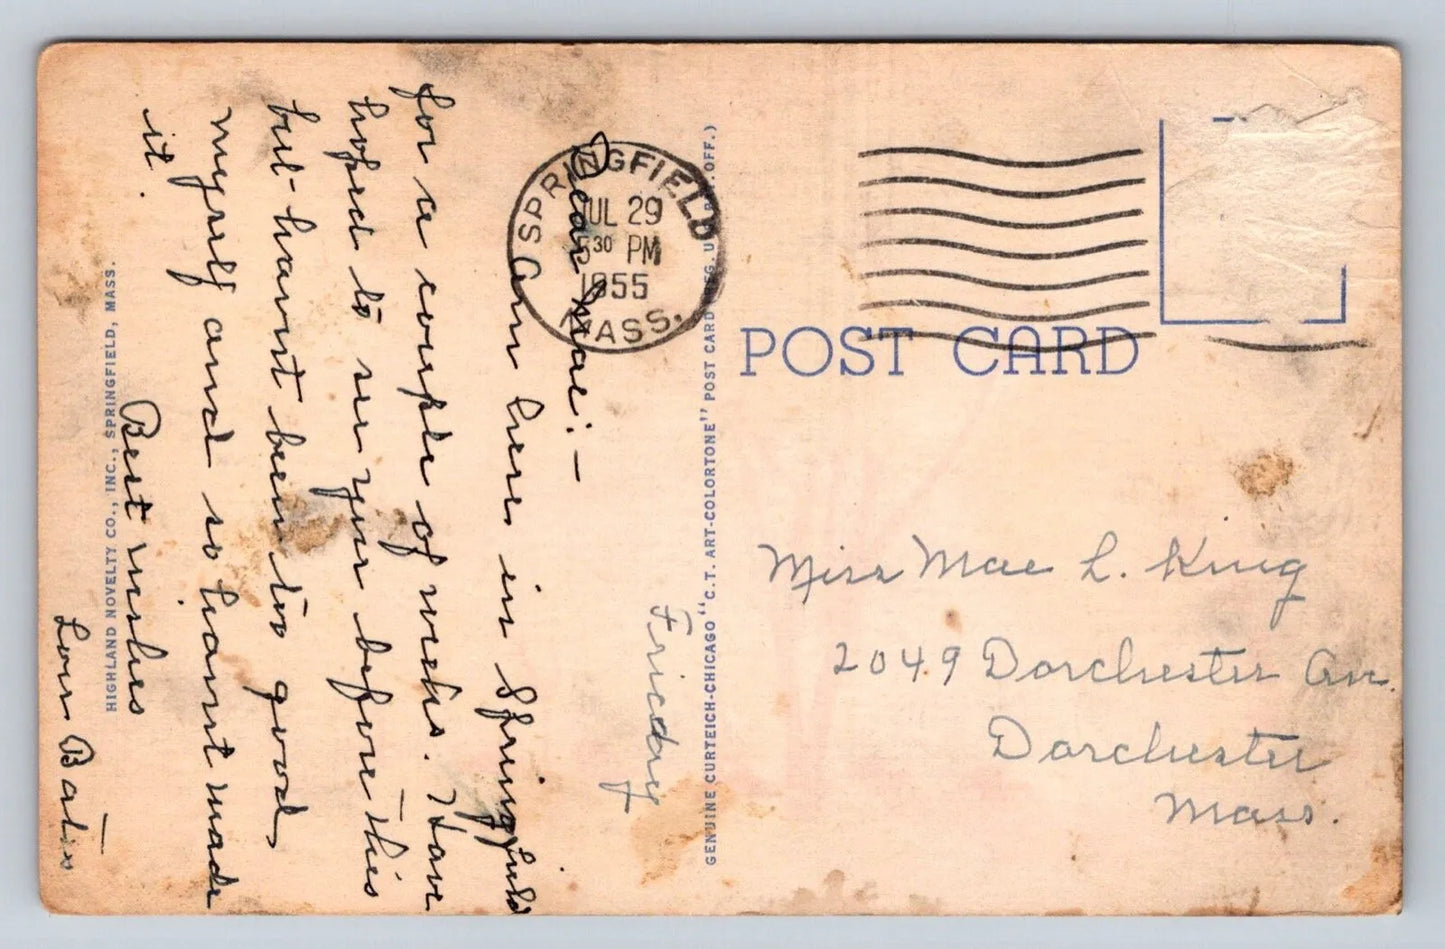 Friday
Dear Mae:-
Am here in Springfield
for a couple of weeks. Have
hoped to see you before this
but havnt been too good,
myself and so havnt made
it.
Best wishes
HIGHLAND NOVELTY CO., INC., SPRINGFIELD, MASS.
SPRINGFIELD
JUL 29
5 30 PM
1955
MASS.
GENUINE CURTEICH-CHICAGO "C.T. ART-COLORTONE" POST CARD
OFF.)
POST CARD
Miss Mae L. King
2049 Dorchester Ave.
Dorchester
Mass.